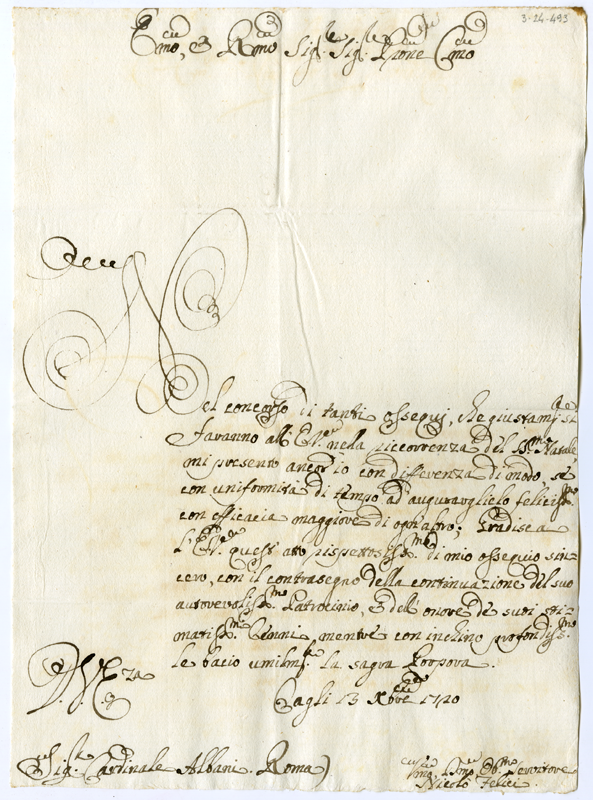 3-24-493
Emo, e Rmo Sigr. Sigr. Pne Cmo
Nel concorso di tanti ossequj, che giustamte si
faranno all' E.V. nella riccorrenza del SSmo Natale,
mi presento ancor io con differenza di modo, se
con uniformità di tempo ad augurarglielo feliciss.mo
con efficacia maggiore di ogn'altro; Gradisca
l'E.V. quest'atto rispettosiss.mo di mio ossequio sin=
cero, con il contrasegno della continuazione del suo
autorevoliss.mo Patrocinio, e dell'onore de suoi sti=
matiss.mi Cenni, mentre con inchino profondiss.mo
le bacio umilmte. la sagra Porpora.
D. V. Eza
Cagli 13 Xbre 1720
Sigr. Cardinale Albani. Roma
Vmo, Dmo Obmo Servitore
Nicolò Felici.